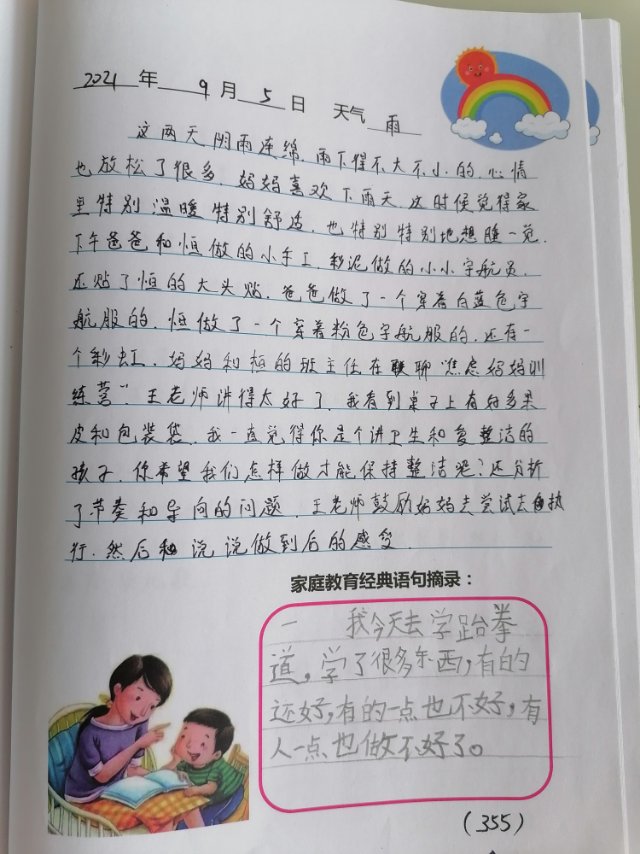 2021年 9月 5日 天气 雨
这两天阴雨连绵.雨下得不大不小的.心情
也放松了很多.妈妈喜欢下雨天.这时候觉得家
里特别温暖特别舒适.也特别特别地想睡一觉.
下午爸爸和恒做的小手工.彩泥做的小小宇航员.
还贴了恒的大头贴.爸爸做了一个穿着白蓝色宇
航服的.恒做了一个穿着粉色宇航服的.还有一
个彩虹.妈妈和恒的班主任在联聊"焦虑妈妈训
练营".王老师讲得太好了.我看到桌子上有好多果
皮和包装袋.我一直觉得你是个讲卫生和爱整洁的
孩子.你希望我们怎样做才能保持整洁呢?还分析
了节奏和导向的问题.王老师鼓励妈妈去尝试去执
行.然后说说做到后的感受.
家庭教育经典语句摘录:
一 我今天去学跆拳
道,学了很多东西,有的
还好,有的一点也不好,有
人一点也做不好了。
(355)